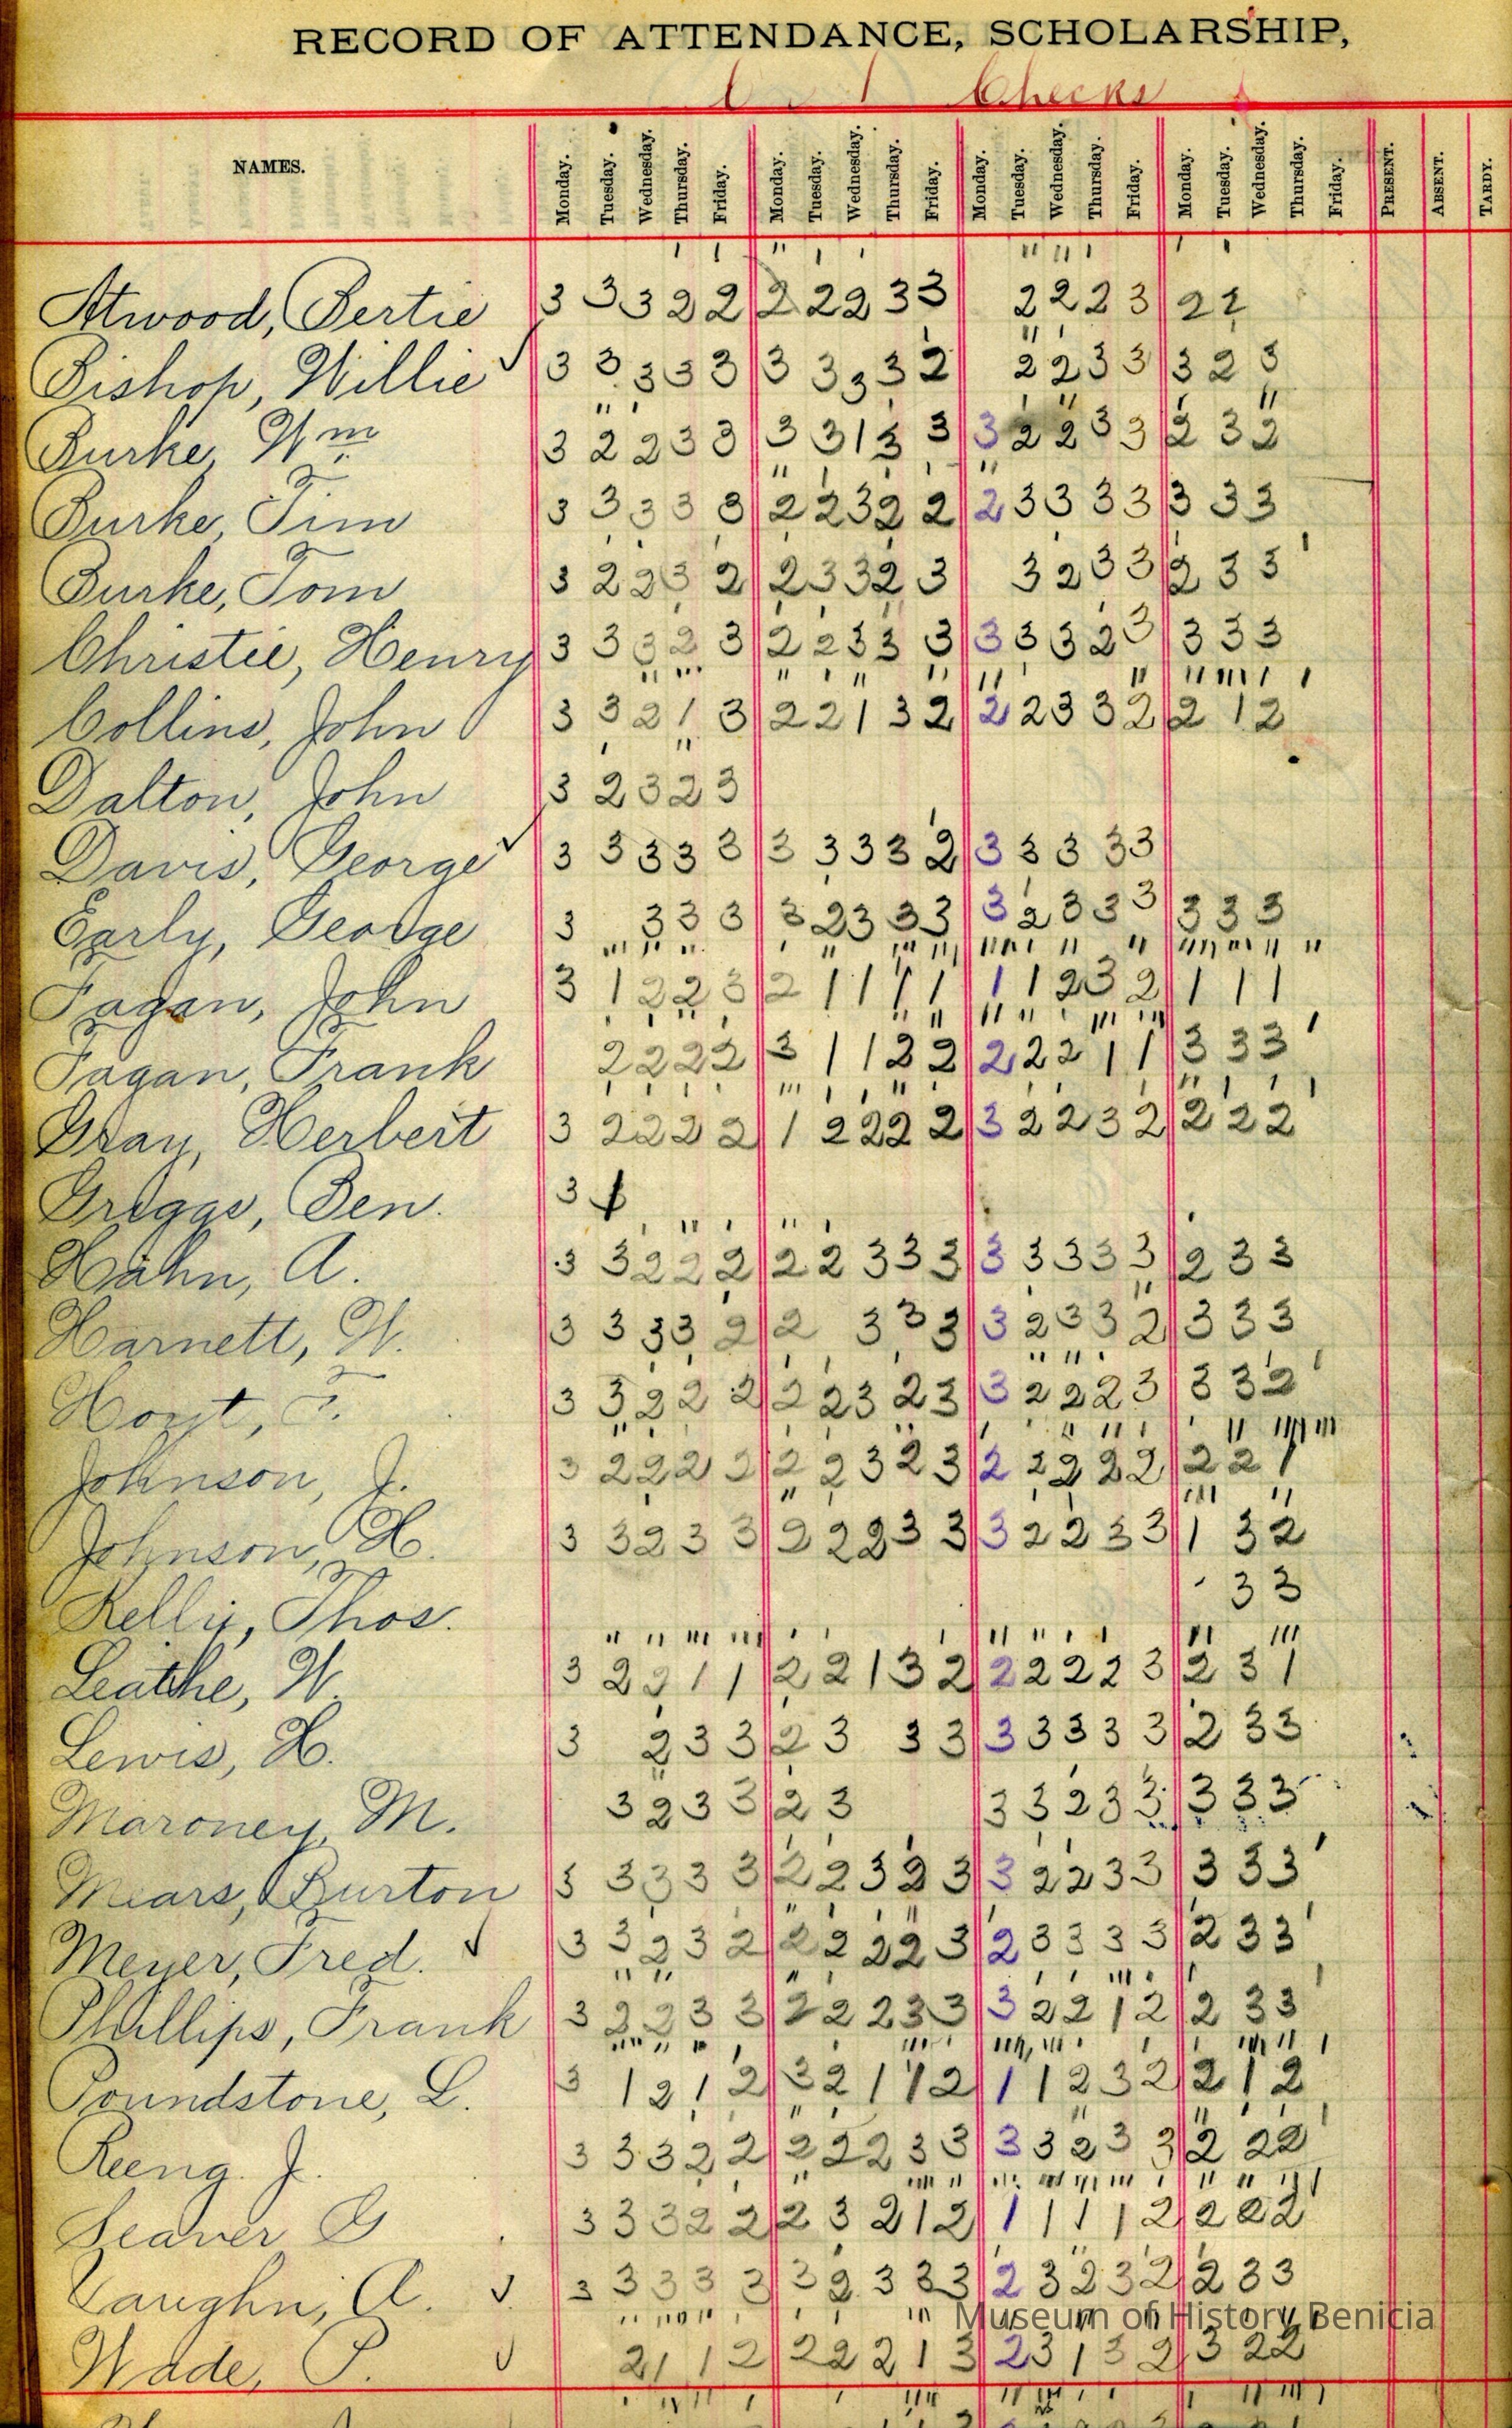 RECORD OF ATTENDANCE, SCHOLARSHIP,
Checks
NAMES. Monday. Tuesday. Wednesday. Thursday. Friday. Monday. Tuesday. Wednesday. Thursday. Friday. Monday. Tuesday. Wednesday. Thursday. Friday. Monday. Tuesday. Wednesday. Thursday. Friday. PRESENT. ABSENT. TARDY.
Atwood, Bertie 3 3 3 2 2 2 2 2 3 3 2 2 2 3 2 2
Bishop, Willie ✓ 3 3 3 3 3 3 3 3 3 2 2 2 3 3 3 2 3
Burke, Wm 3 2 2 3 3 3 3 1 3 3 3 2 2 3 3 2 3 2
Burke, Tim 3 3 3 3 3 2 2 3 2 2 2 3 3 3 3 3 3 3
Burke, Tom 3 2 2 3 2 2 3 3 2 3 3 2 3 3 2 3 3
Christie, Henry 3 3 3 2 3 2 2 3 3 3 3 3 3 2 3 3 3 3
Collins, John 3 3 2 1 3 2 2 1 3 2 2 2 3 3 2 2 1 2
Dalton, John 3 2 3 2 3
Davis, George ✓ 3 3 3 3 3 3 3 3 3 2 3 3 3 3 3
Early, George 3 3 3 3 3 2 3 3 3 3 2 3 3 3 3 3 3
Fagan, John 3 1 2 2 3 2 1 1 1 1 1 1 2 3 2 1 1 1
Fagan, Frank 2 2 2 2 3 1 1 2 2 2 2 2 1 1 3 3 3
Gray, Herbert 3 2 2 2 2 1 2 2 2 2 3 2 2 3 2 2 2 2
Griggs, Ben. 3
Hahn, A. 3 3 2 2 2 2 2 3 3 3 3 3 3 3 3 2 3 3
Harnett, W. 3 3 3 3 2 2 3 3 3 3 2 3 3 2 3 3 3
Hoyt, F. 3 3 2 2 2 2 2 3 2 3 3 2 2 2 3 3 3 2
Johnson, J. 3 2 2 2 2 2 2 3 2 3 2 2 2 2 2 2 2 1
Johnson, H. 3 3 2 3 3 2 2 2 3 3 3 2 2 3 3 1 3 2
Kelly, Thos. 3 3
Leathe, W. 3 2 2 1 1 2 2 1 3 2 2 2 2 2 3 2 3 1
Lewis, H. 3 2 3 3 2 3 3 3 3 3 3 3 3 2 3 3
Maroney, M. 3 2 3 3 2 3 3 3 2 3 3 3 3 3
Mears, Burton 3 3 3 3 3 2 2 3 2 3 3 2 2 3 3 3 3 3
Meyer, Fred. ✓ 3 3 2 3 2 2 2 2 2 3 2 3 3 3 3 2 3 3
Phillips, Frank 3 2 2 3 3 2 2 2 3 3 3 2 2 1 2 2 3 3
Poundstone, L. 3 1 2 1 2 3 2 1 1 2 1 1 2 3 2 2 1 2
Reeng. J. 3 3 3 2 2 2 2 2 3 3 3 3 2 3 3 2 2 2
Seaver G 3 3 3 2 2 2 3 2 1 2 1 1 1 1 2 2 2 2
Vaughn, A. ✓ 3 3 3 3 3 3 2 3 3 3 2 3 2 3 2 2 3 3
Museum of History, Benicia
Wade, P. ✓ 2 1 1 2 2 2 2 1 3 2 3 1 3 2 3 2 2